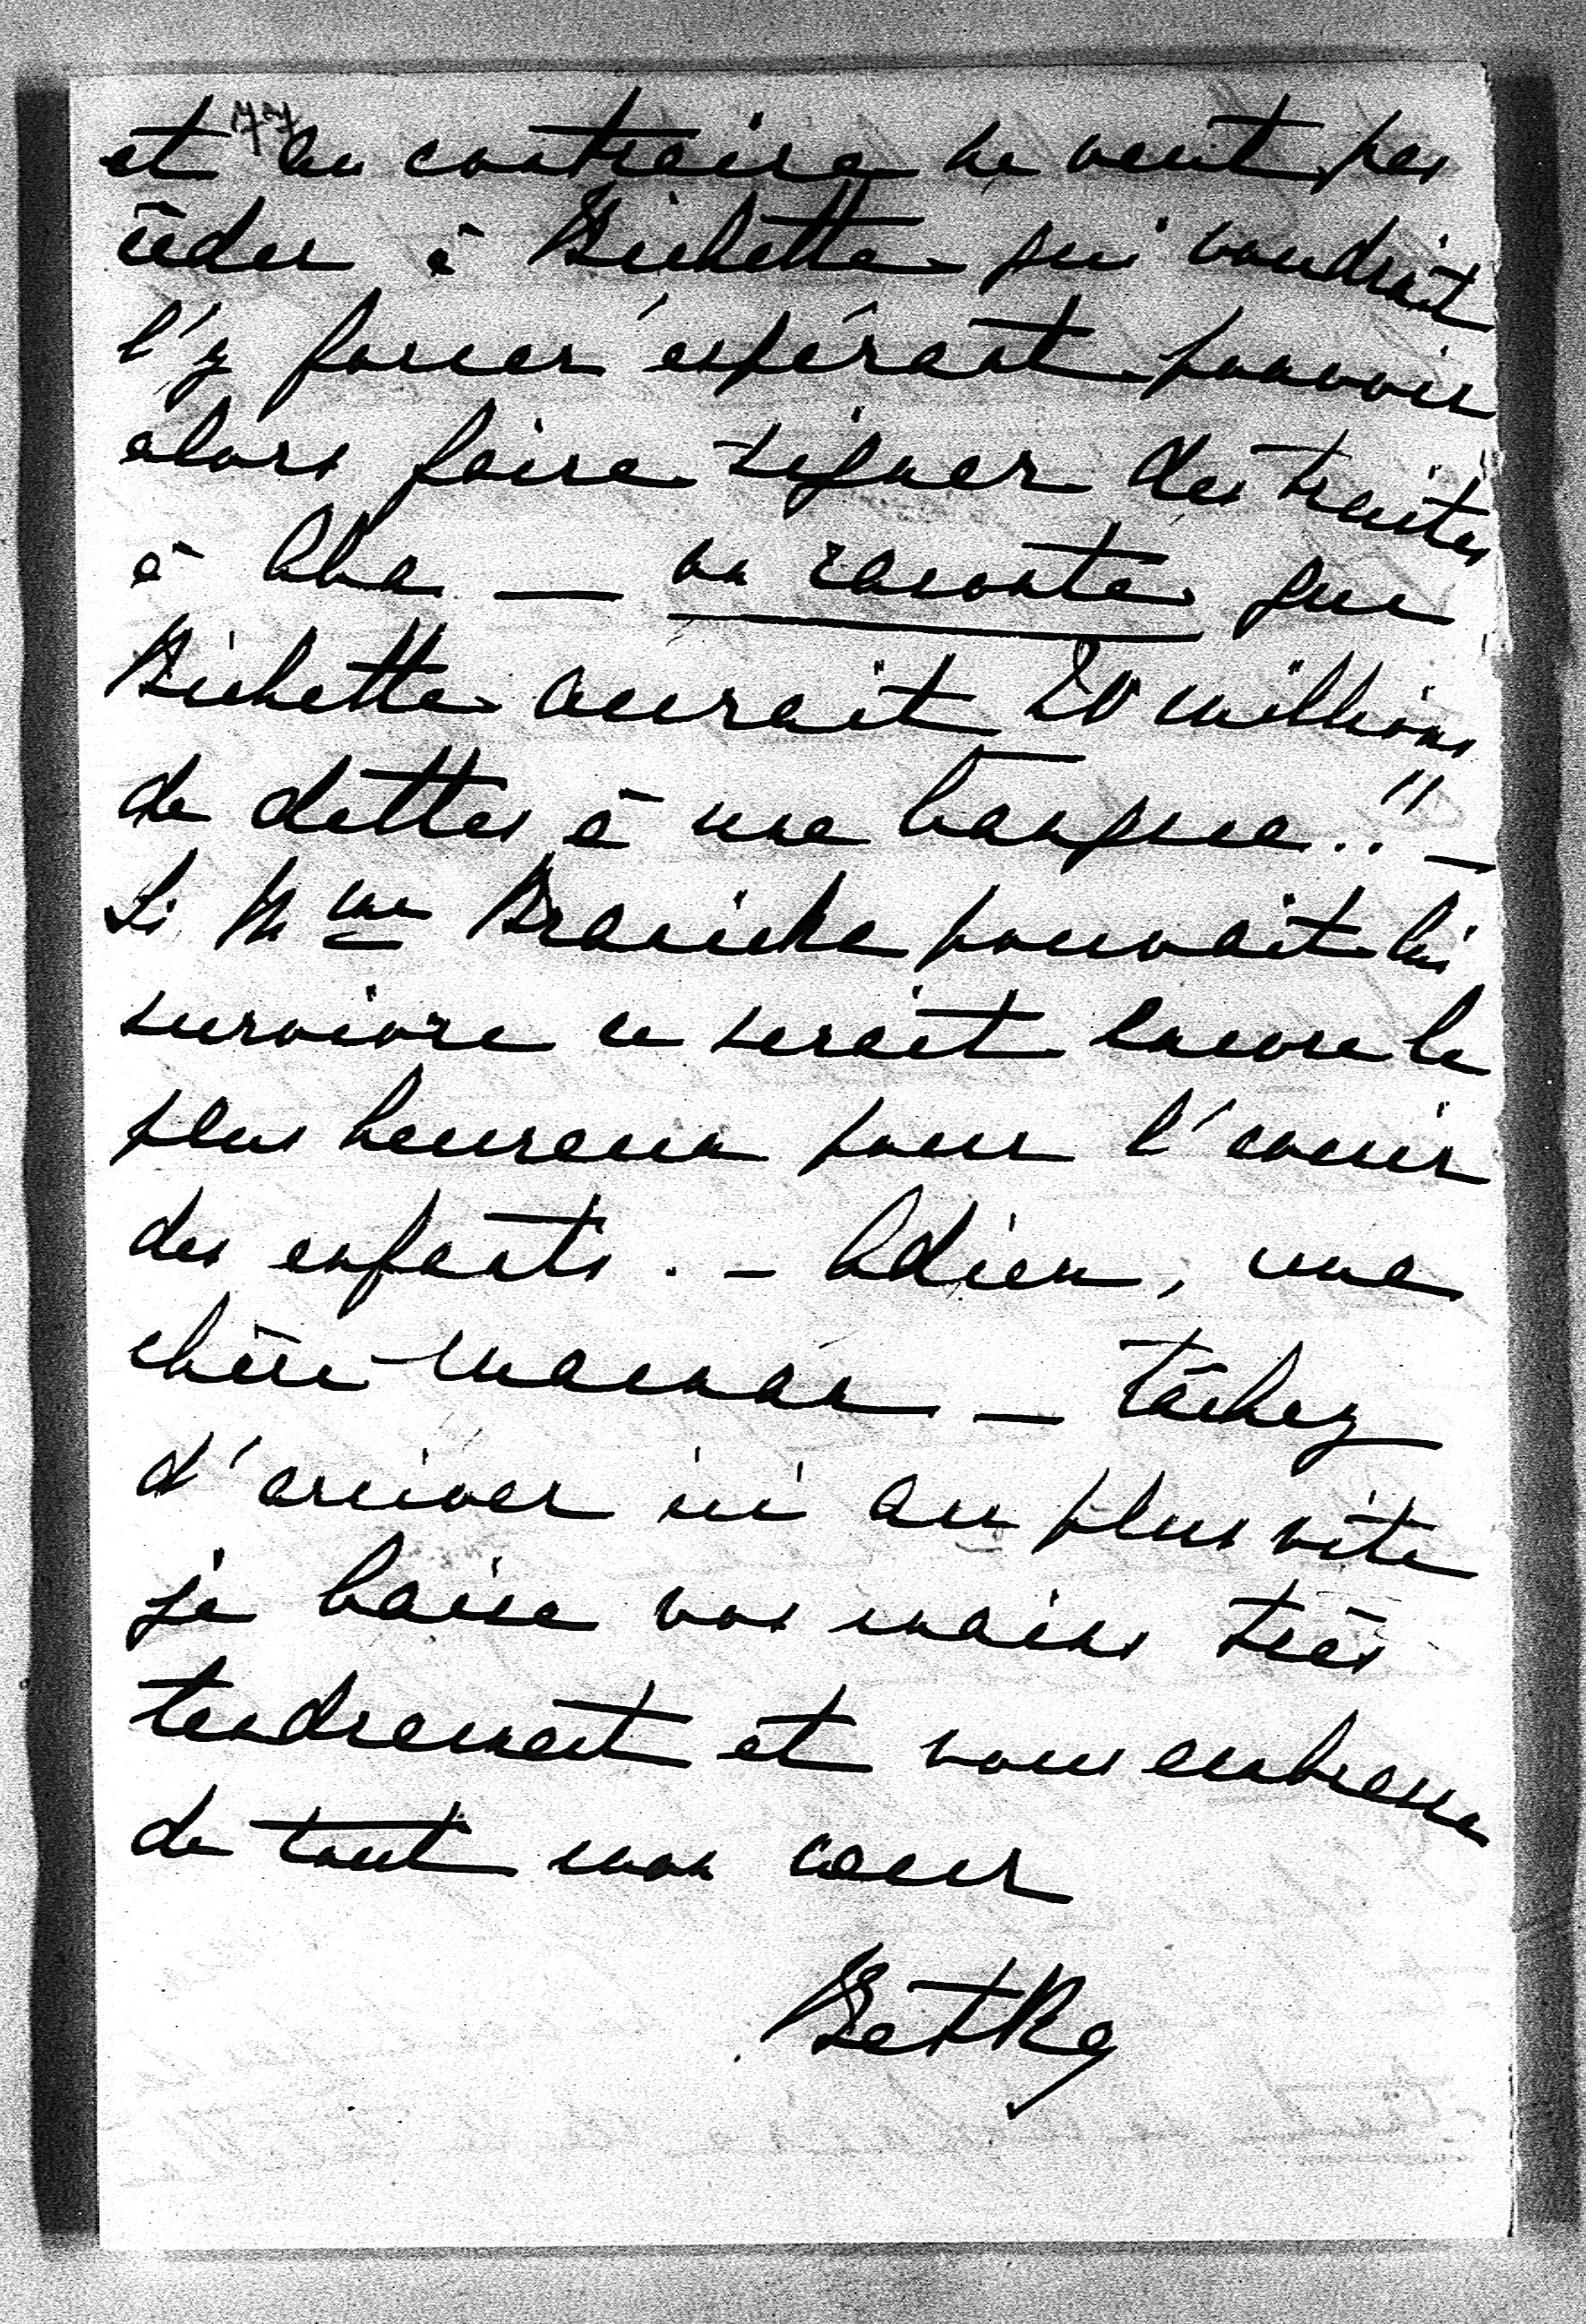 77
et au contraire ne veut pas
céder à Bichette qui voudrait
l'y forcer espérant pouvoir
alors faire signer des traites
à Aba — on raconte que
Bichette aurait 20 millions
de dettes à une banque..!! —
Si Mme Branicka pouvait lui
survivre ce serait encore le
plus heureux pour l'avenir
des enfants. — Adieu, ma
chère maman — tâchez
d'arriver ici au plus vite
je baise vos mains très
tendrement et vous embrasse
de tout mon cœur
Betka